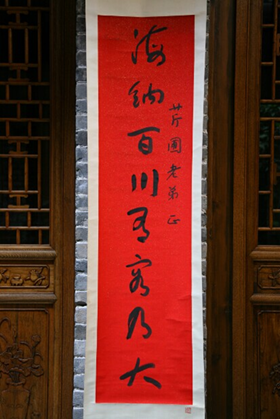 芹圃老弟正
海納百川有容乃大